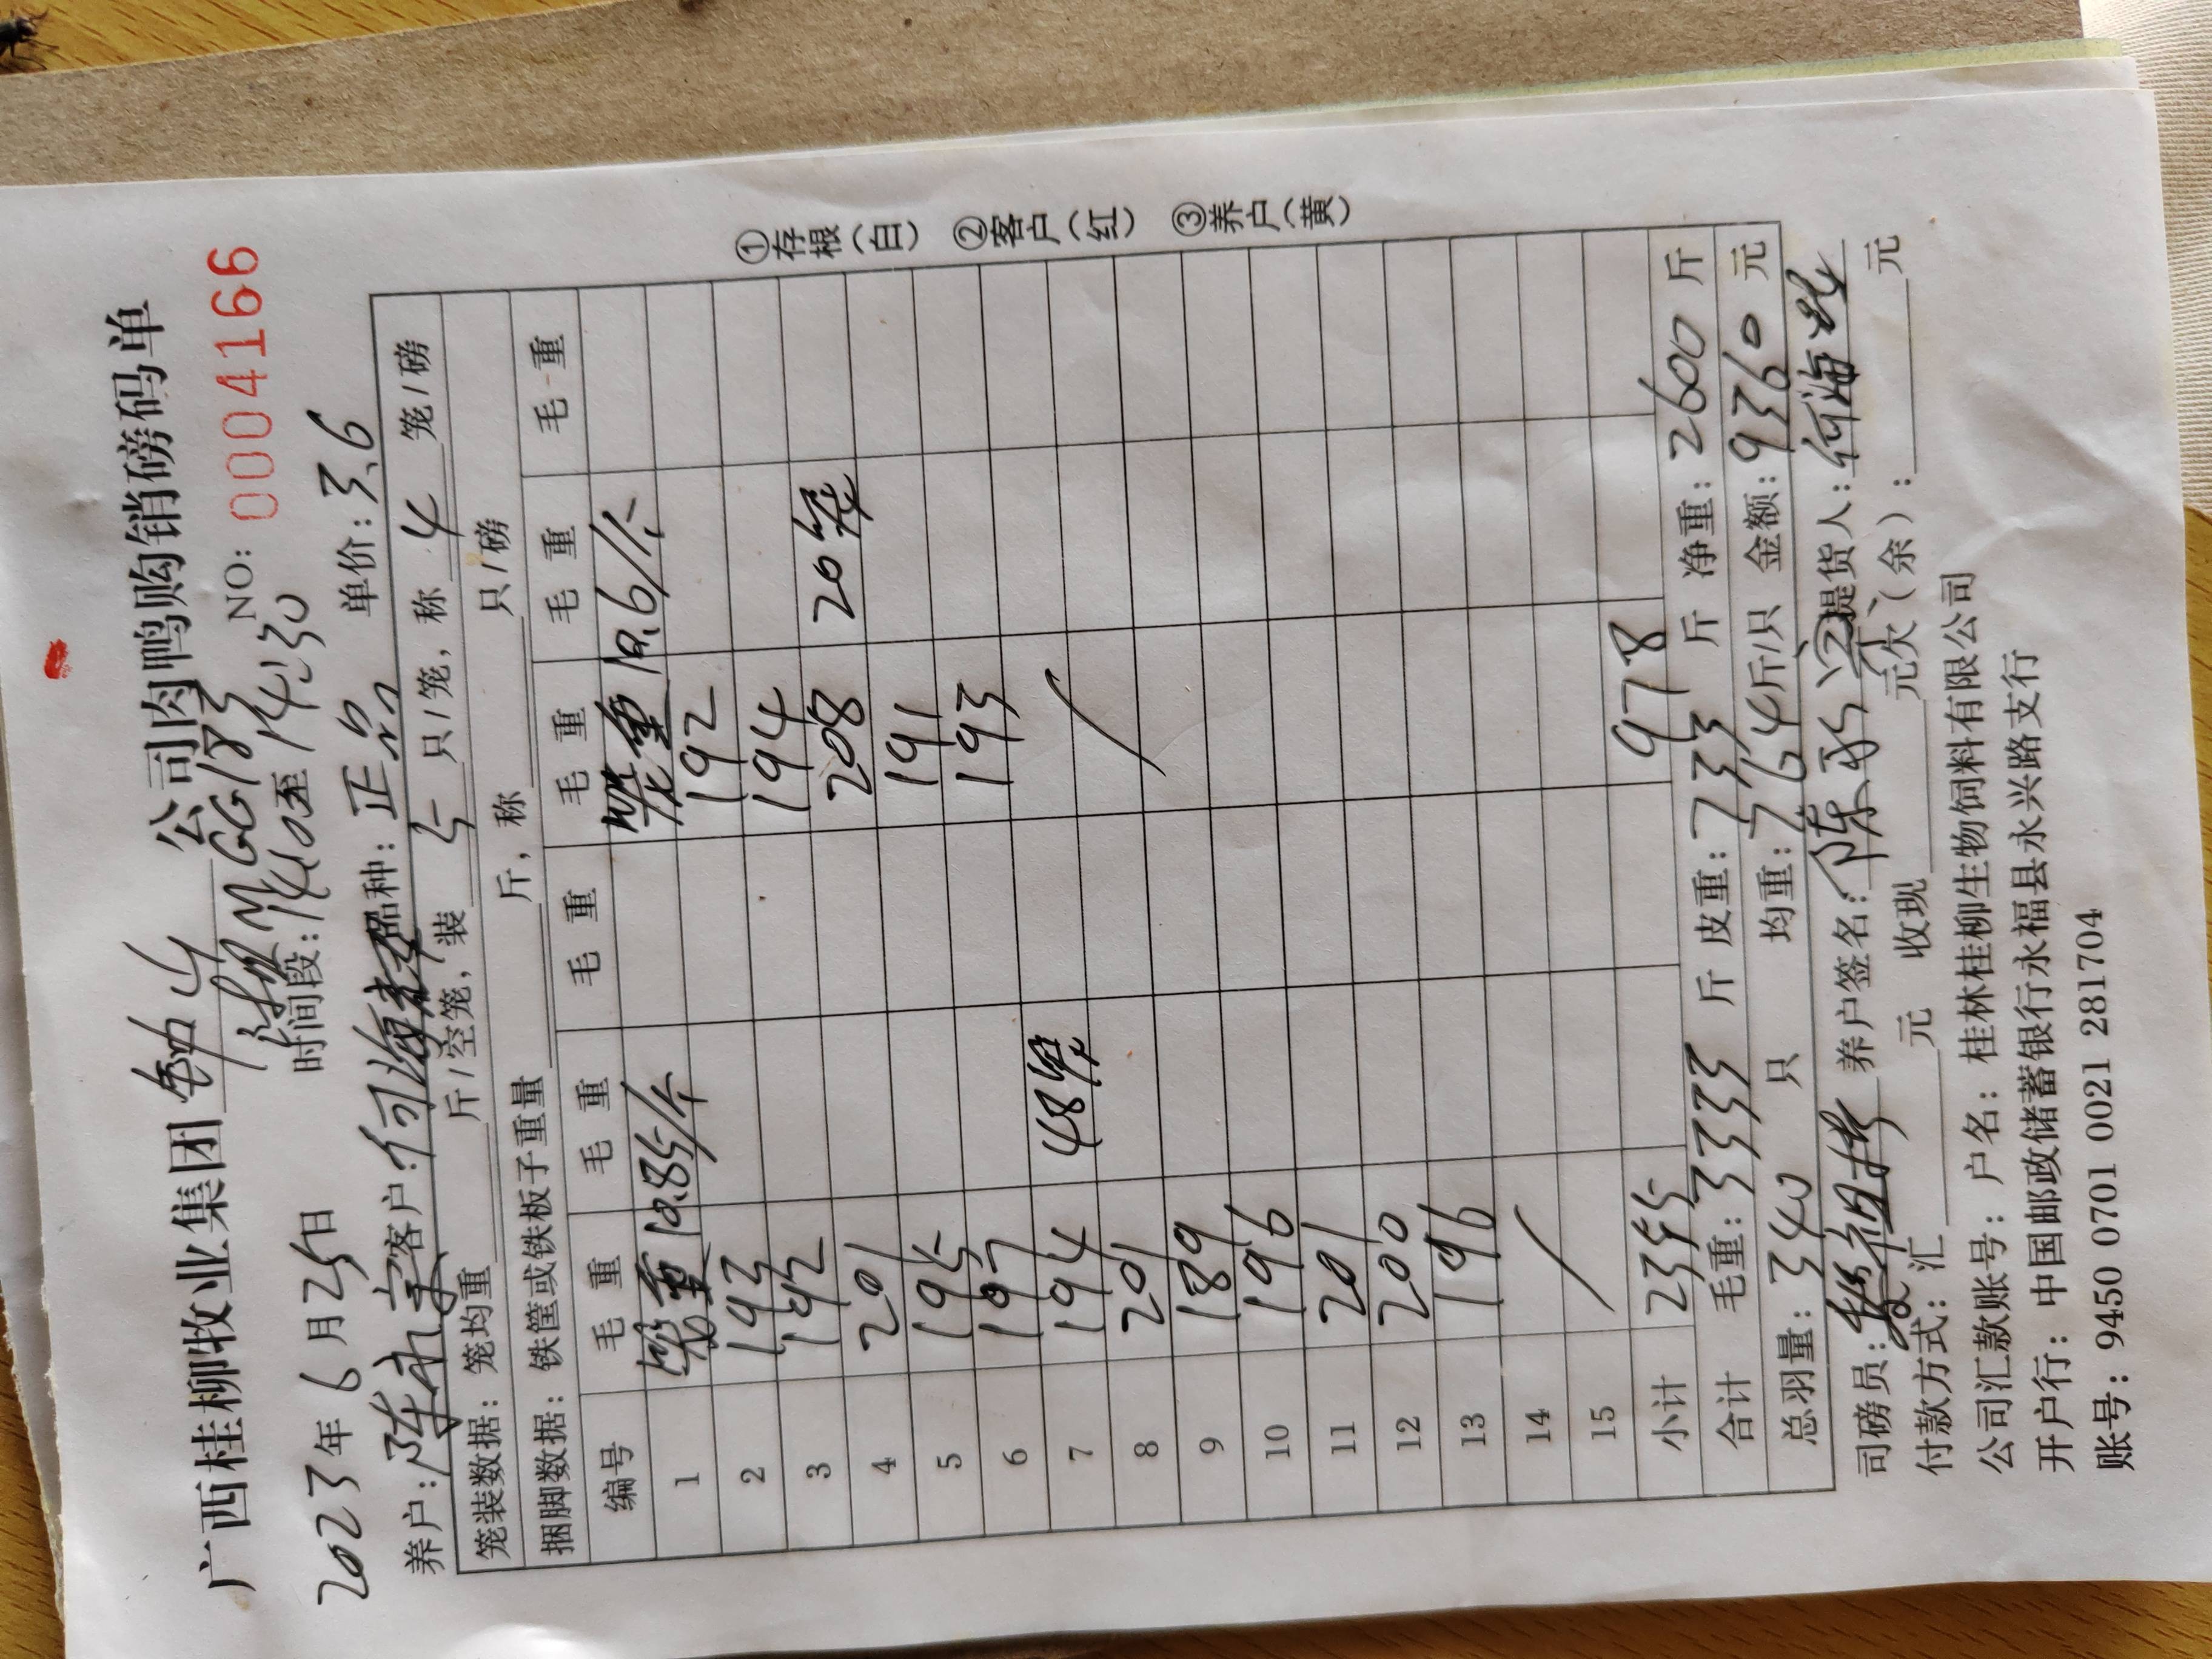 广西桂柳牧业集团 钟山 公司肉鸭购销磅码单
NO: 0004166
2023年 6 月 25日 时间段: 14:10至 14:30
养户: 陈 客户: 何海 品种: 正品 单价: 3.6
笼装数据: 笼均重 斤/空笼, 装 5 只/笼, 称 4 笼/磅
捆脚数据: 铁筐或铁板子重量 斤, 称 只/磅
编号 毛 重 毛 重 毛 重 毛 重 毛 重 毛 重
1 笼重 10.85/个 笼重 10.6/个
2 193 192
3 192 194 20笼
4 201 208
5 195 191
6 197 193
7 194 48笼
8 201
9 189
10 196
11 201
12 200
13 196
14
15
小计 2355 978
合计 毛重: 3333 斤 皮重: 733 斤 净重: 2600 斤
总羽量: 340 只 均重: 7.64斤/只 金额: 9360 元
司磅员: 养户签名: 陈 提货人: 何海
付款方式: 汇 元 收现 元欠(余): 元
公司汇款账号: 户名: 桂林桂柳生物饲料有限公司
开户行: 中国邮政储蓄银行永福县永兴路支行
账号: 9450 0701 0021 281704
①存根(白) ②客户(红) ③养户(黄)